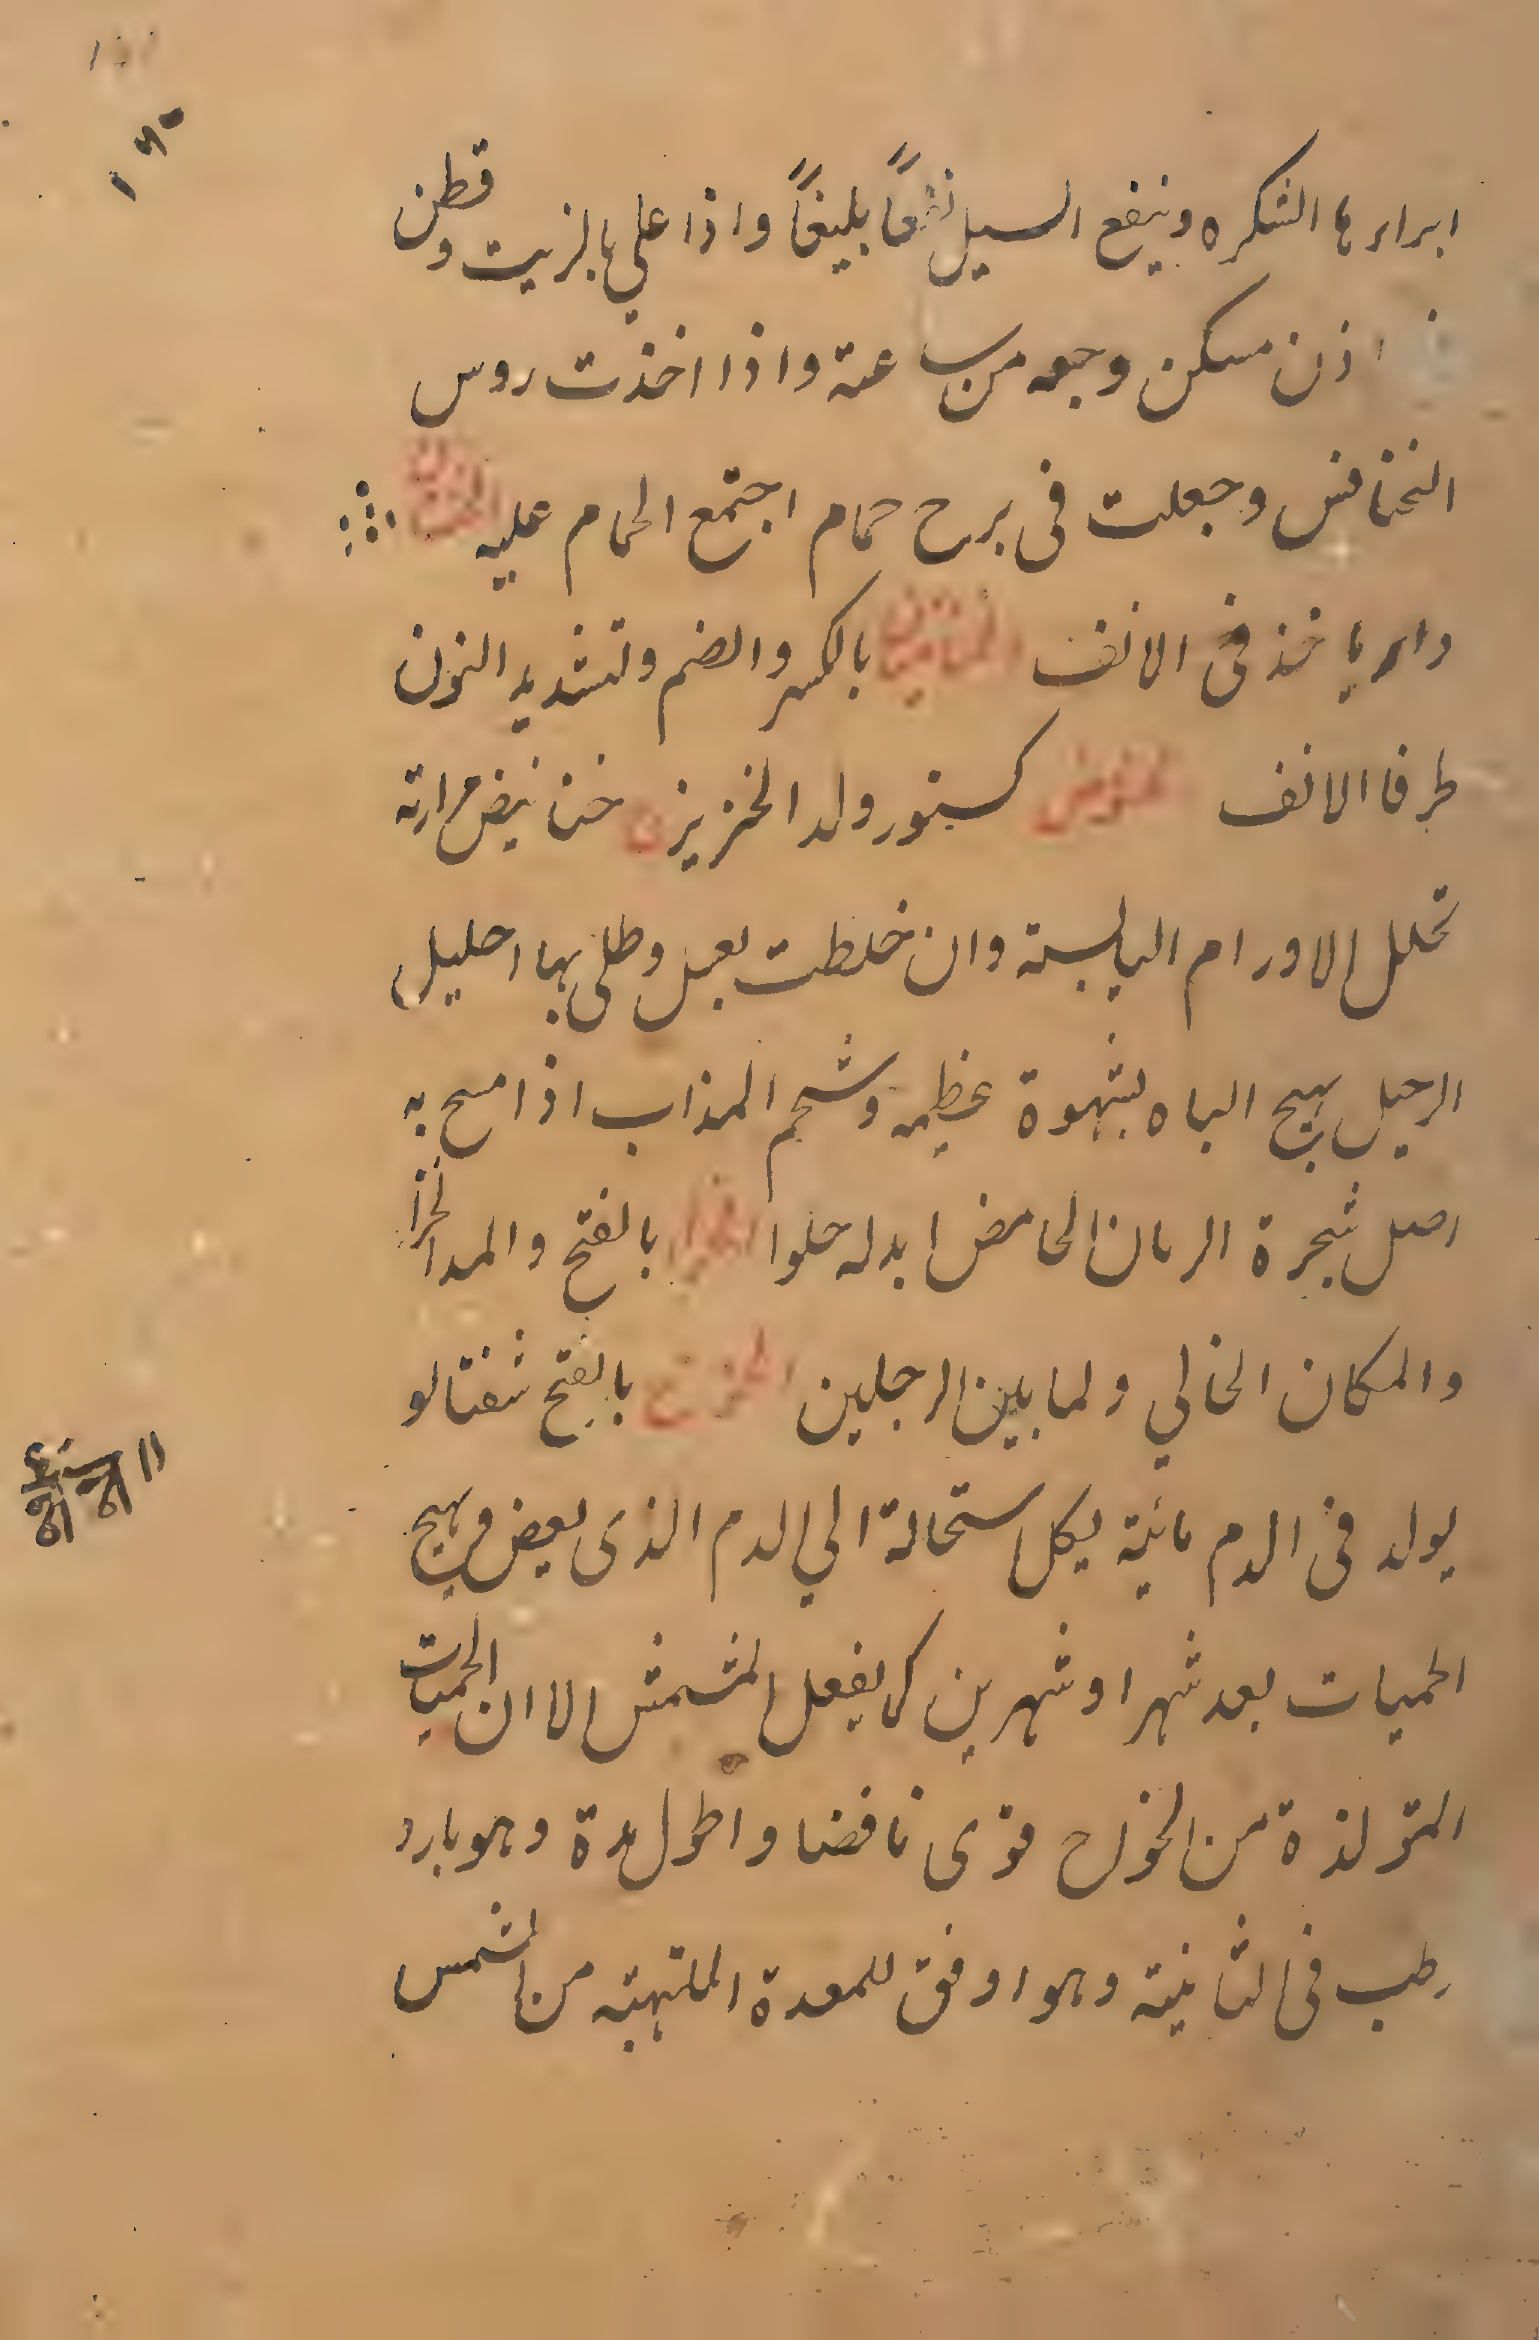 ابراءها الشكره وينفع السيل نفعاً بليغاً واذا علي بالزيت وقطن
اذن مسكن وجعه من ساعته واذا اخذت روس
الخنافس وجعلت فى برج حمام اجتمع الحمام عليه الخنان
داء ياخذ فى الانف بالكسر والضم وتشديد النون
طرفا الانف خنوص كسنور ولد الخنزير خنانيض مرارته
تحلل الاورام اليابسة وان خلطت بعسل وطلى بها احليل
الرجل يهيج الباه بشهوة عظيمه وشحم المذاب اذا مسح به
اصل شجرة الرمان الحامض ابدله حلوا بالفتح والمد
والمكان الخالي ولما بين الرجلين الخوخ بالفتح شفتالو
يولد فى الدم مائية يكل ستحالة الي الدم الذى بعض ويهيج
الحميات بعد شهر او شهرين كما يفعل المشمش الا ان الحميات
المتولذة من الخوخ قوى نافضا واطول مدة وهو بارد
رطب فى الثانية وهو اوفق للمعدة الملتهبة من المشمس